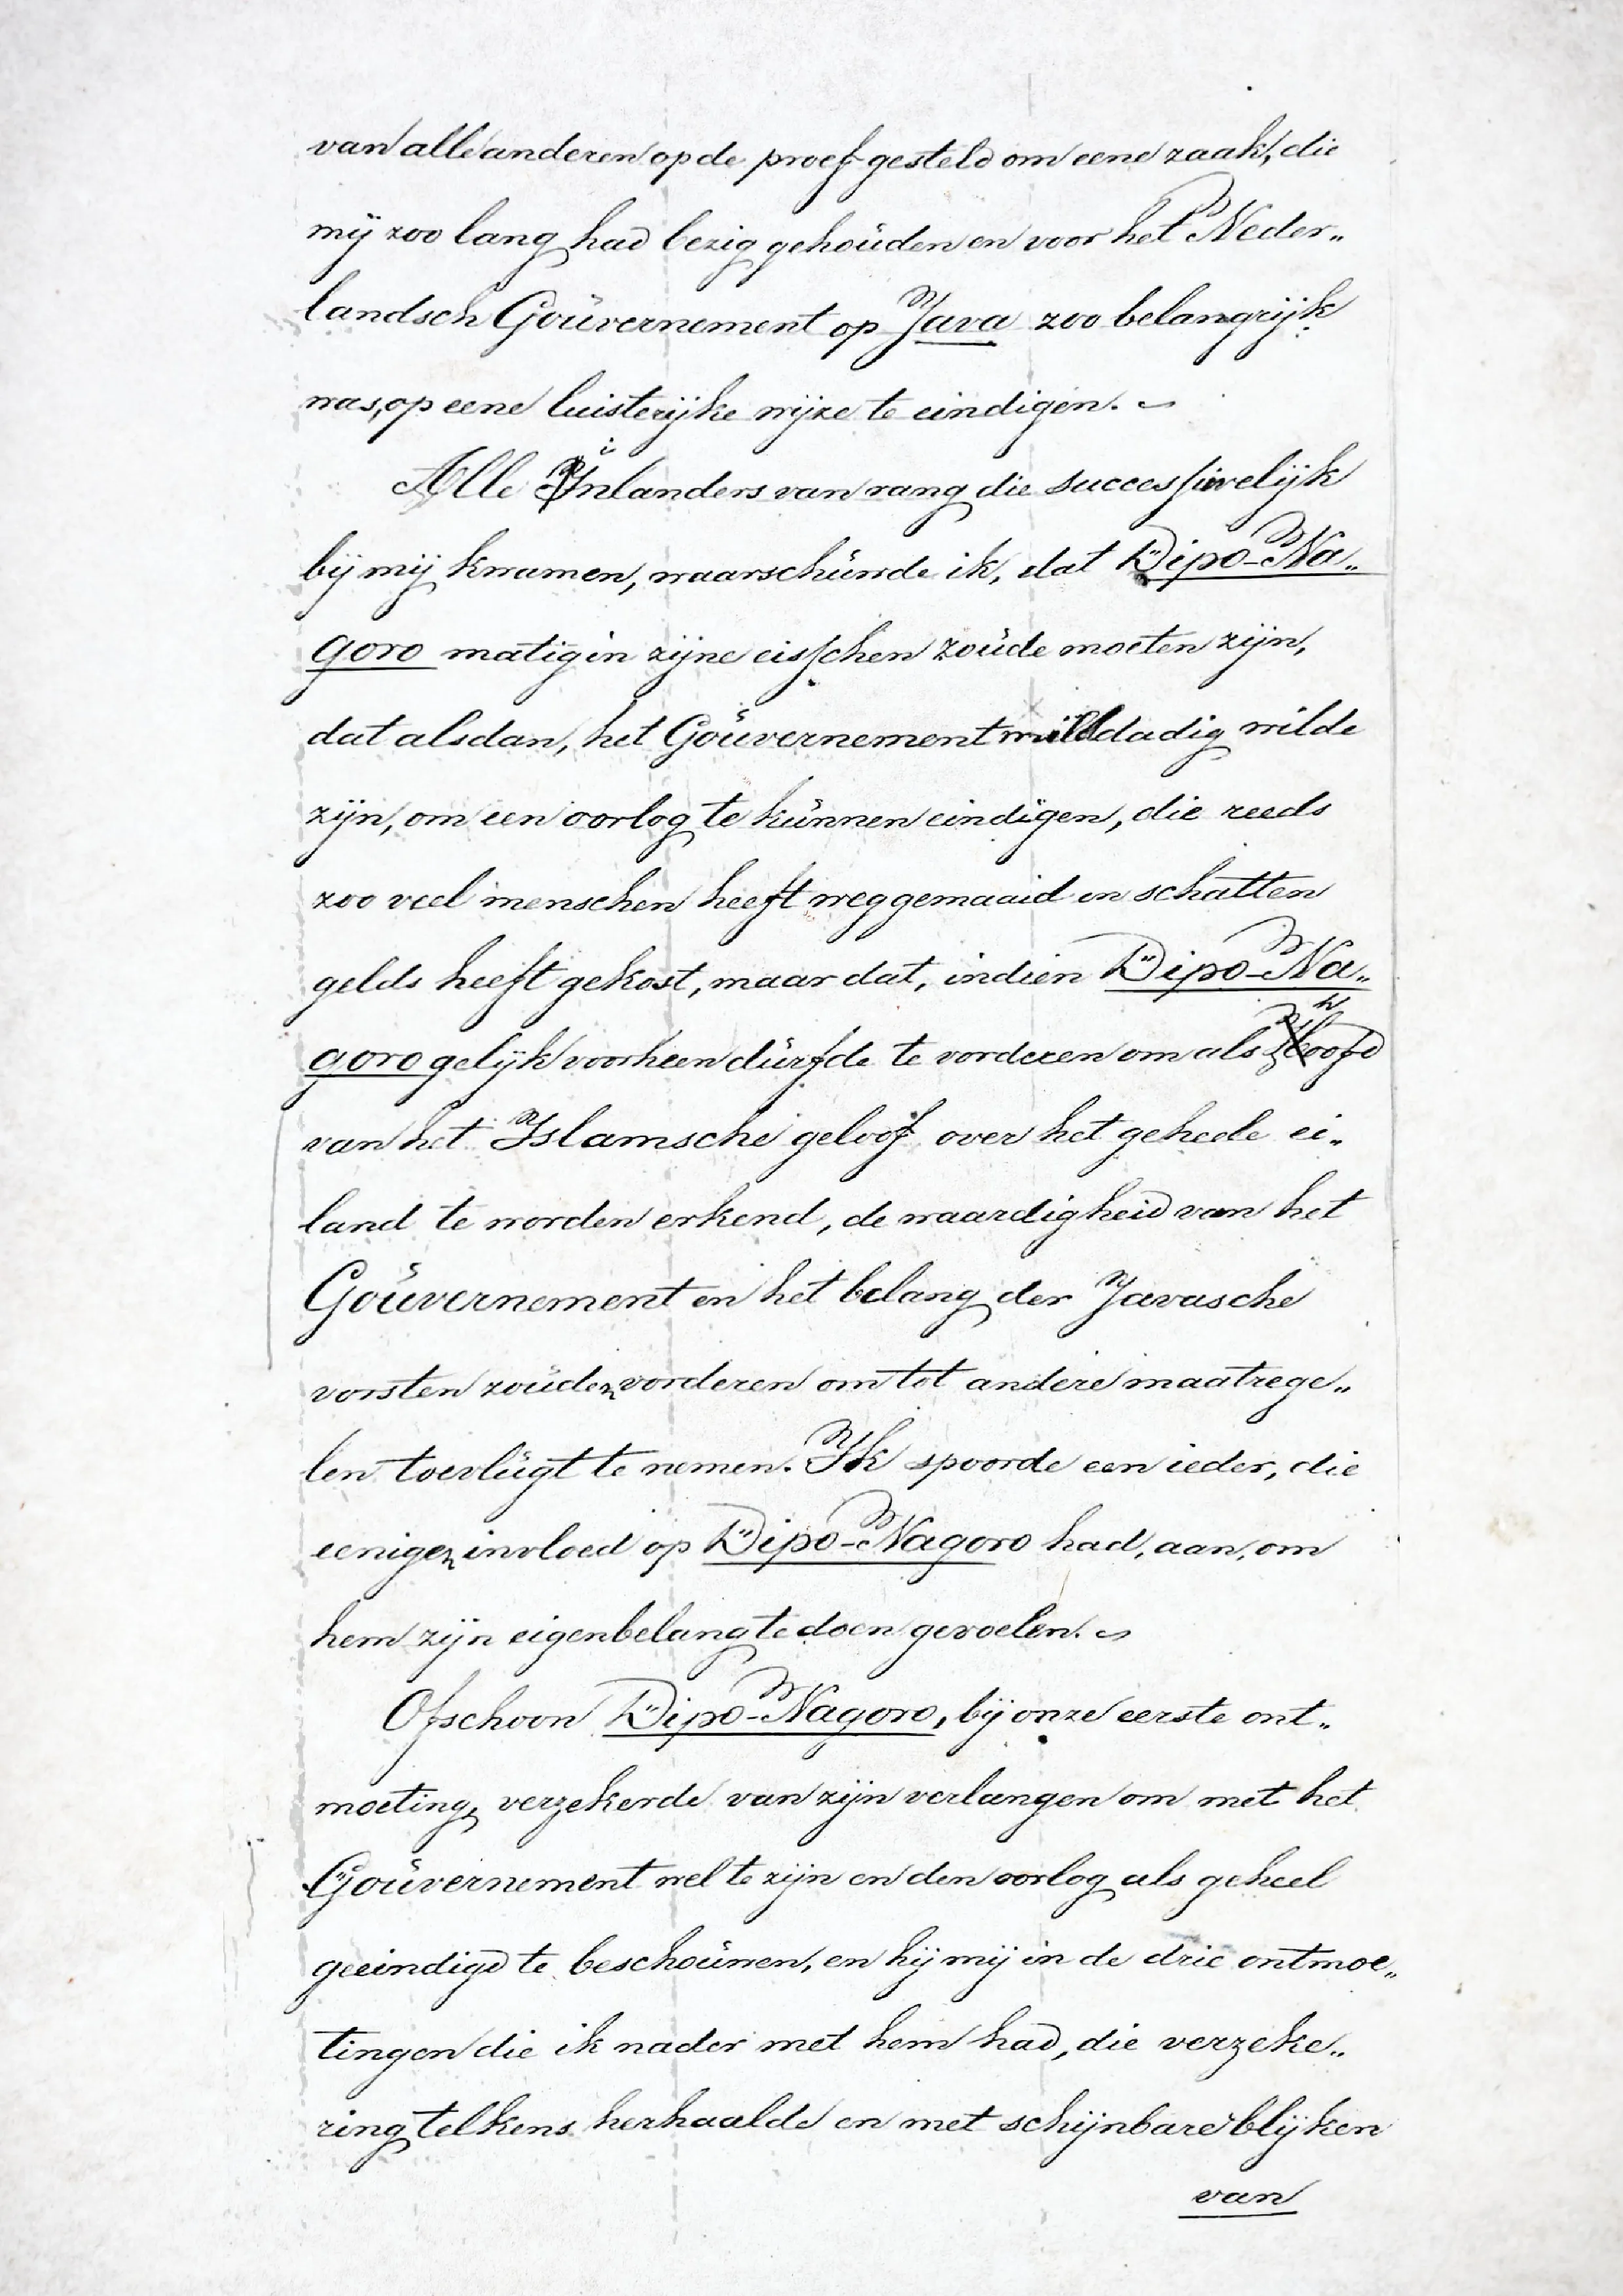 van alle anderen op de proef gesteld om eene zaak, die
mij zoo lang had bezig gehouden en voor het Neder„
landsch Gouvernement op Java zoo belangrijk
was, op eene luisterijke wijze te eindigen.
Alle inlanders van rang die successivelijk
bij mij kwamen, waarschuwde ik, dat Dipo-Na„
goro matig in zijne eisschen zoude moeten zijn,
dat alsdan, het Gouvernement milddadig wilde
zijn, om een oorlog te kunnen eindigen, die reeds
zoo veel menschen heeft weggemaaid en schatten
gelds heeft gekost, maar dat, indien Dipo-Na„
goro gelijk voorheen durfde te vorderen om als hoofd
van het Islamsche geloof over het geheele ei„
land te worden erkend, de waardigheid van het
Gouvernement en het belang der Javasche
vorsten zouden vorderen om tot andere maatrege„
len toevlugt te nemen. Ik spoorde een ieder, die
eenigen invloed op Dipo-Nagoro had, aan, om
hem zijn eigenbelang te doen gevoelen.
Ofschoon Dipo-Nagoro, bij onze eerste ont„
moeting, verzekerde van zijn verlangen om met het
Gouvernement wel te zijn en den oorlog als geheel
geeindigd te beschouwen, en hij mij in de drie ontmoe„
tingen die ik nader met hem had, die verzeke„
ring telkens herhaalde en met schijnbare blijken
van